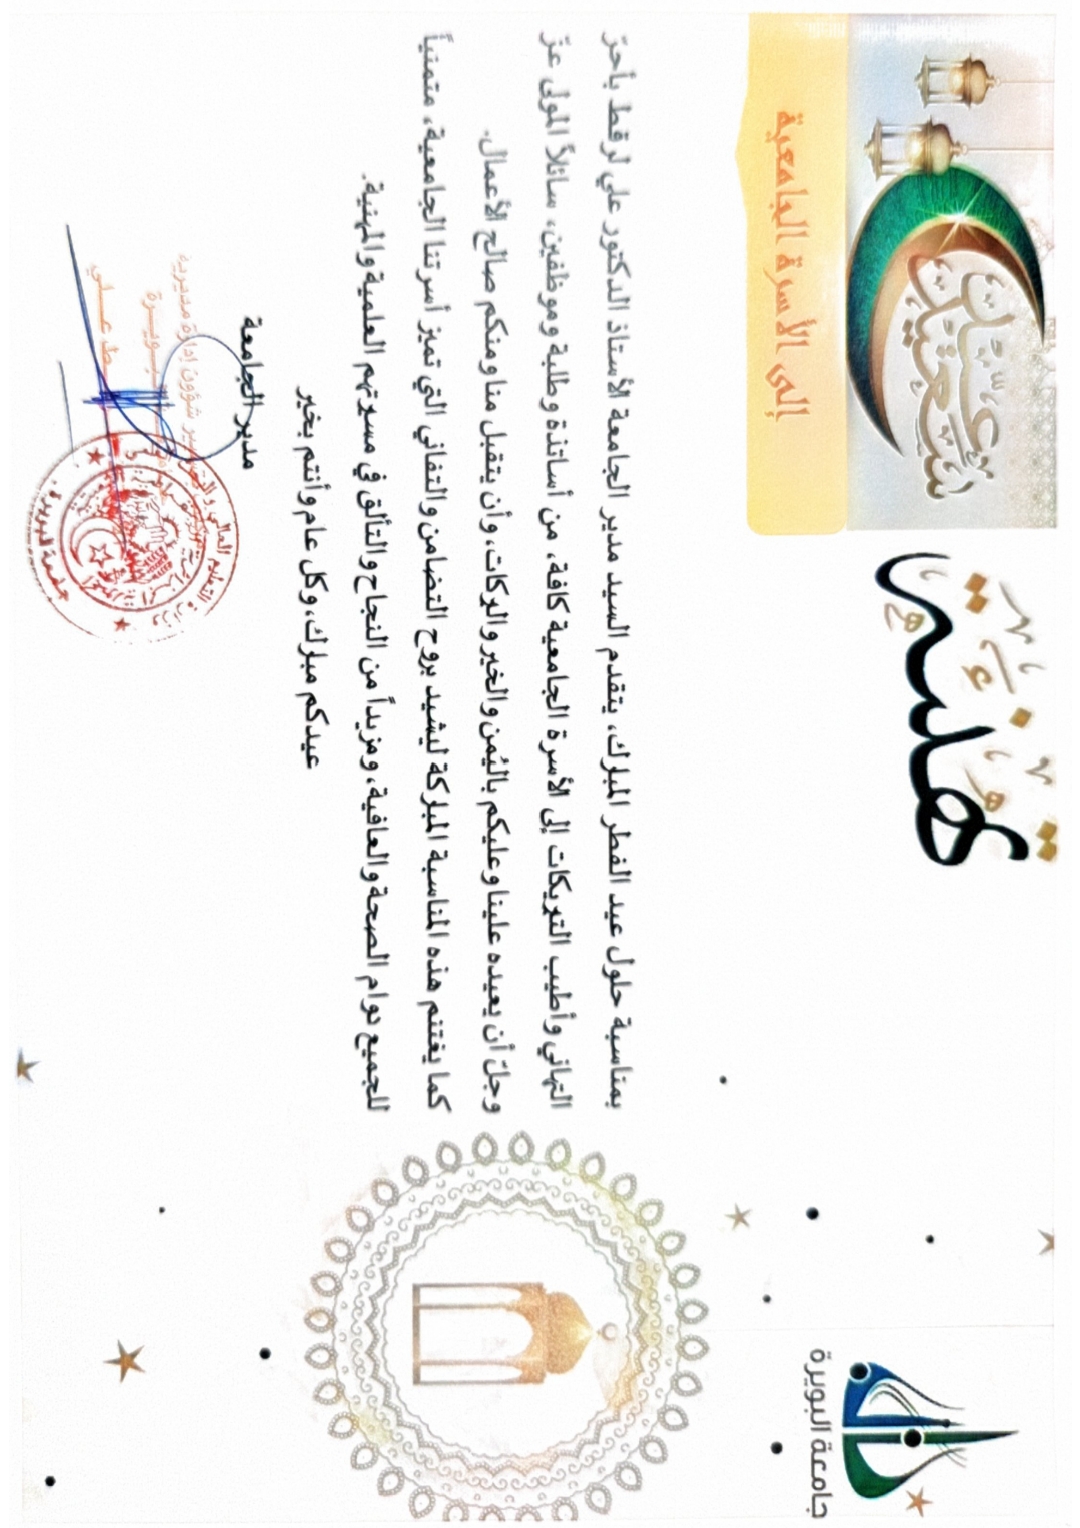 جامعة البويرة
تهنئة
عيدكم سعيد
إلى الأسرة الجامعية
بمناسبة حلول عيد الفطر المبارك، يتقدم السيد مدير الجامعة الأستاذ الدكتور علي لرقط بأحرّ
التهاني وأطيب التبريكات إلى الأسرة الجامعية كافة، من أساتذة وطلبة وموظفين، سائلاً المولى عزّ
وجلّ أن يعيده علينا وعليكم باليُمن والخير والبركات، وأن يتقبل منا ومنكم صالح الأعمال.
كما يغتنم هذه المناسبة المباركة ليشيد بروح التضامن والتفاني التي تميز أسرتنا الجامعية، متمنياً
للجميع دوام الصحة والعافية، ومزيداً من النجاح والتألق في مسيرتهم العلمية والمهنية.
عيدكم مبارك، وكل عام وأنتم بخير
مدير الجامعة
شؤون إدارة مديرية
جامعة البويرة